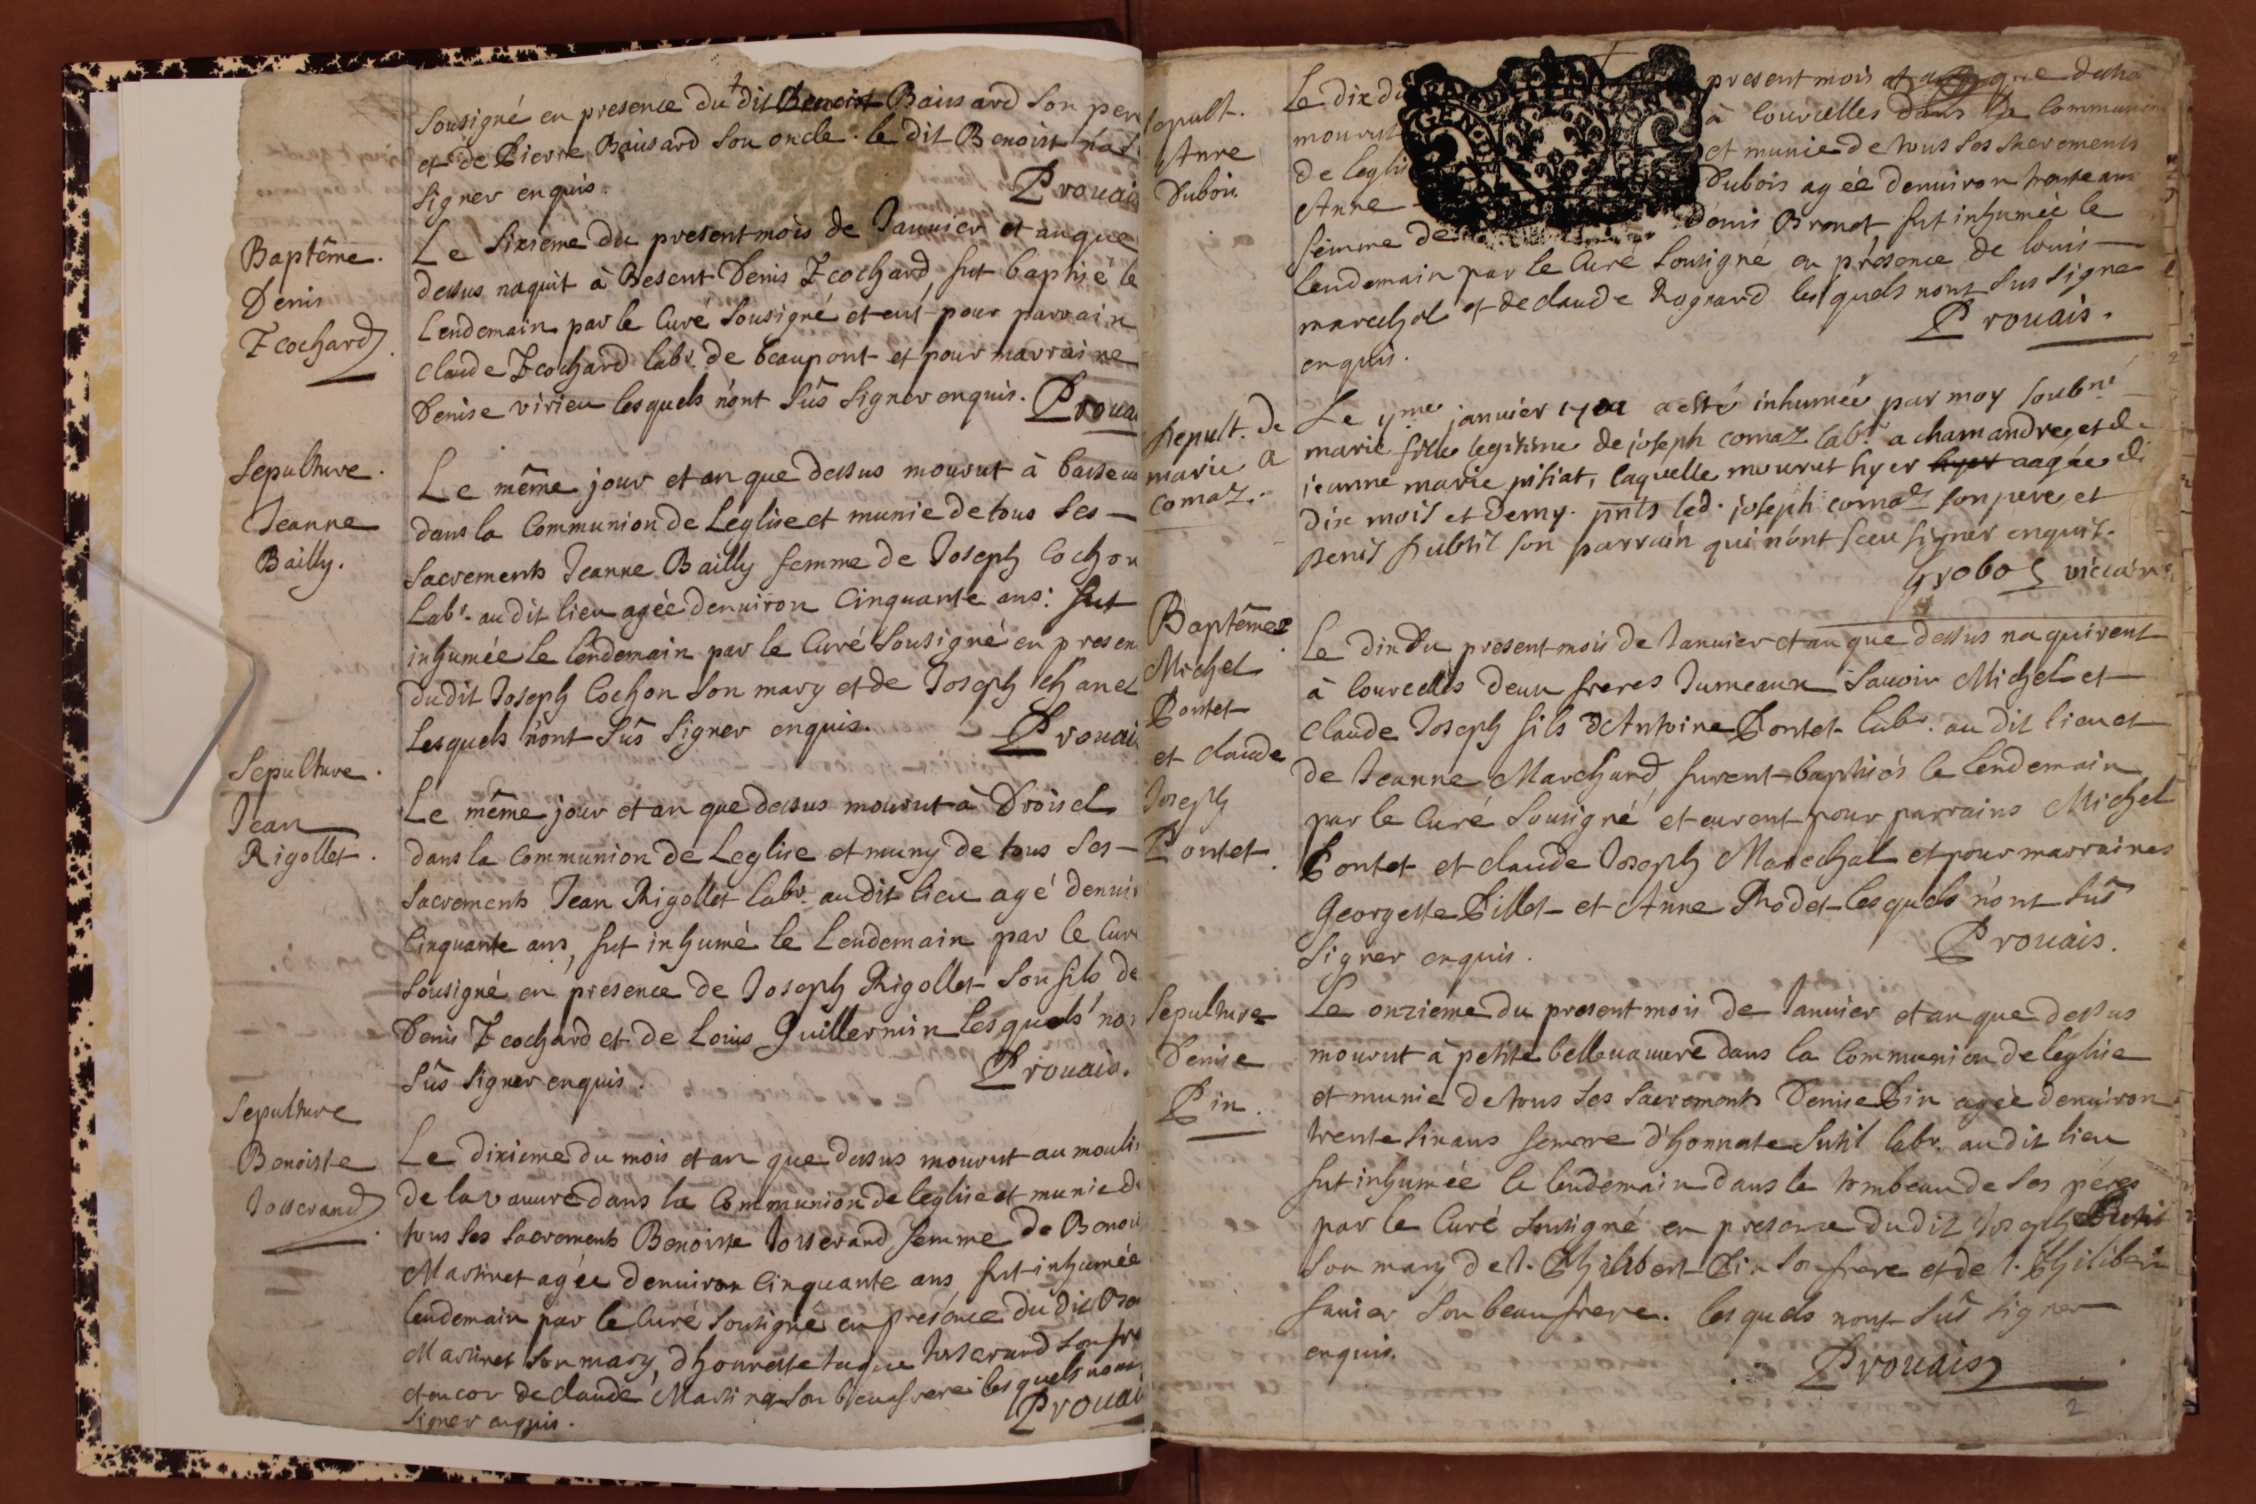 Sousigné en presence du dit Benoist Baisard son pere
et de Pierre Baisard son oncle. le dit Benoist n'a
signer enquis.
Prouais
Baptême.
Denis
Le sixieme du present mois de Janvier et an que
dessus naquit à Besent Denis fut baptisé le
Lendemain par le Curé Sousigné et eut pour parrain
Claude labr. de beaupont et pour marraine
Denise virieu lesquels n'ont sûs signer enquis. Prouais
Sepulture.
Jeanne
Bailly.
Le même jour et an que dessus mourut à
dans la Communion de Leglise et munie de tous ses
Sacrements Jeanne Bailly femme de Joseph Cochon
Labr. audit lieu agée denviron Cinquante ans: fut
inhumée le lendemain par le Curé Sousigné en presen
dudit Joseph Cochon son mary et de Joseph Chanel
Lesquels n'ont sûs signer enquis. Prouais
Sepulture.
Jean
Rigollet.
Le même jour et an que dessus mourut à Droisel
dans la Communion de Leglise et muny de tous ses
Sacrements Jean Rigollet labr. audit lieu agé denvir
Cinquante ans, fut inhumé le Lendemain par le Curé
Sousigné en presence de Joseph Rigollet son fils de
Denis et de Louis Guillermin lesquels n'on
sûs signer enquis. Prouais.
Sepulture
Benoiste
Josserand.
Le dixieme du mois et an que dessus mourut au mouli
de la vauvre dans la Communion de leglise et munie de
tous ses sacrements Benoiste Josserand femme de Benoi
Martinet agée denviron Cinquante ans fut inhumée
lendemain par le Curé Sousigné en presence du dit
Martinet son mary, d'honneste Josserand son fre
et encor de claude son beaufrere lesquels nont
signer enquis.
Prouais
sepult.
Anne
Dubois
Le dix du present mois et an que
mourut à Courcelles dans la Communion
de leglis et munie de tous ses sacrements
Anne Dubois agée denviron trente ans
femme de Denis Brunet fut inhumée le
lendemain par le Curé sousigné en présence de louis
marechal et de claude Rognard lesquels n'ont sus signe
enquis.
Prouais.
sepult. de
marie
comaz.
Le janvier a esté inhumée par moy soubné
marie fille legitime de joseph comaz labr. a chamandrey et de
jeanne marie pitiat, laquelle mourut hyer hyer aagée de
dix mois et demy. pnts led. joseph comaz son pere, et
denis subtil son parrain qui n'ont sceu signer enquis.
grobos viccaire
Baptêmes
Michel
Pontet
et claude
Joseph
Pontet.
Le dix du present mois de Janvier et an que dessus naquirent
à Courcelles deux freres Jumeaux Savoir Michel et
Claude Joseph fils d'Antoine Pontet labr. audit lieu et
de Jeanne Marchand, furent baptisés le lendemain
par le Curé Sousigné et eurent pour parrains Michel
Pontet et claude Joseph Marechal et pour marraines
Georgette Pillet et Anne Rhodet lesquels n'ont sûs
signer enquis.
Prouais.
Sepulture
Denise
Pin.
Le onzieme du present mois de Janvier et an que dessus
mourut à petite bellevauvre dans la Communion de léglise
et munie de tous ses sacrements Denise Pin agée denviron
trente six ans femme d'honnete Sutil labr. audit lieu
fut inhumée le lendemain dans le tombeau de ses péres
par le Curé sousigné en presence du dit Joseph Sutil
son mary de Philibert Pin son frere et de Philibert
son beaufrere. lesquels n'ont sûs signer
enquis.
Prouais
2